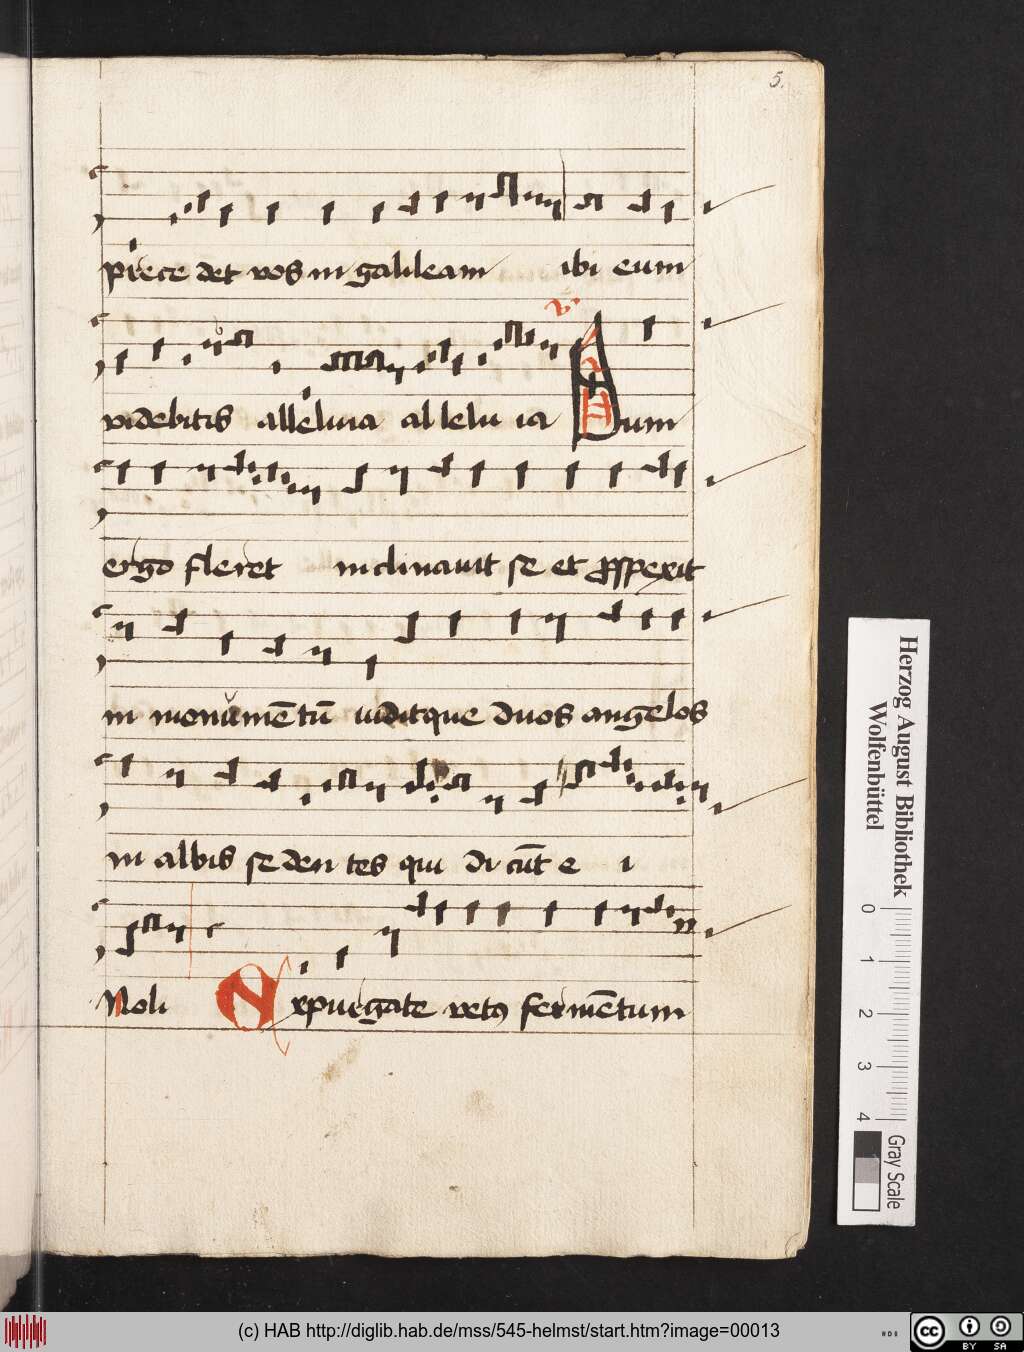 5.
prece det vos in galileam ibi eum
videbitis alleluia al lelu ia Dum
ergo fleret inclinauit se et ꝓspexit
in monumētū uiditque duos angelos
in albis seden tes qui di cūt e i
Noli Expurgate vetꝯ fermētum
Herzog August Bibliothek
Wolfenbüttel
0 1 2 3 4
Gray Scale
(c) HAB http://diglib.hab.de/mss/545-helmst/start.htm?image=00013
cc BY SA